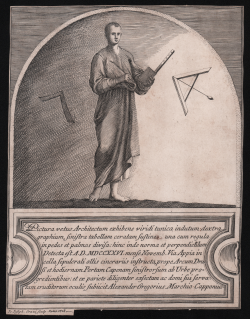 Pictura vetus Architectum exhibens viridi tunica indutum, dextra
graphium, sinistra tabellam ceratam sustinens, una cum regula
in pedes et palmos divisa: hinc inde norma et perpendiculum
Detecta est A.D. MDCCXXVI mense Novemb. Via Appia in
cella sepulcrali ollis cinerariis instructa, prope Arcum Dru
si et hodiernam Portam Capenam sinistrorsum ab Urbe pro
gredientibus: et ex pariete diligenter resectam ac domi suæ serva
tam eruditorum oculis subiicit Alexander Gregorius Marchio Capponius